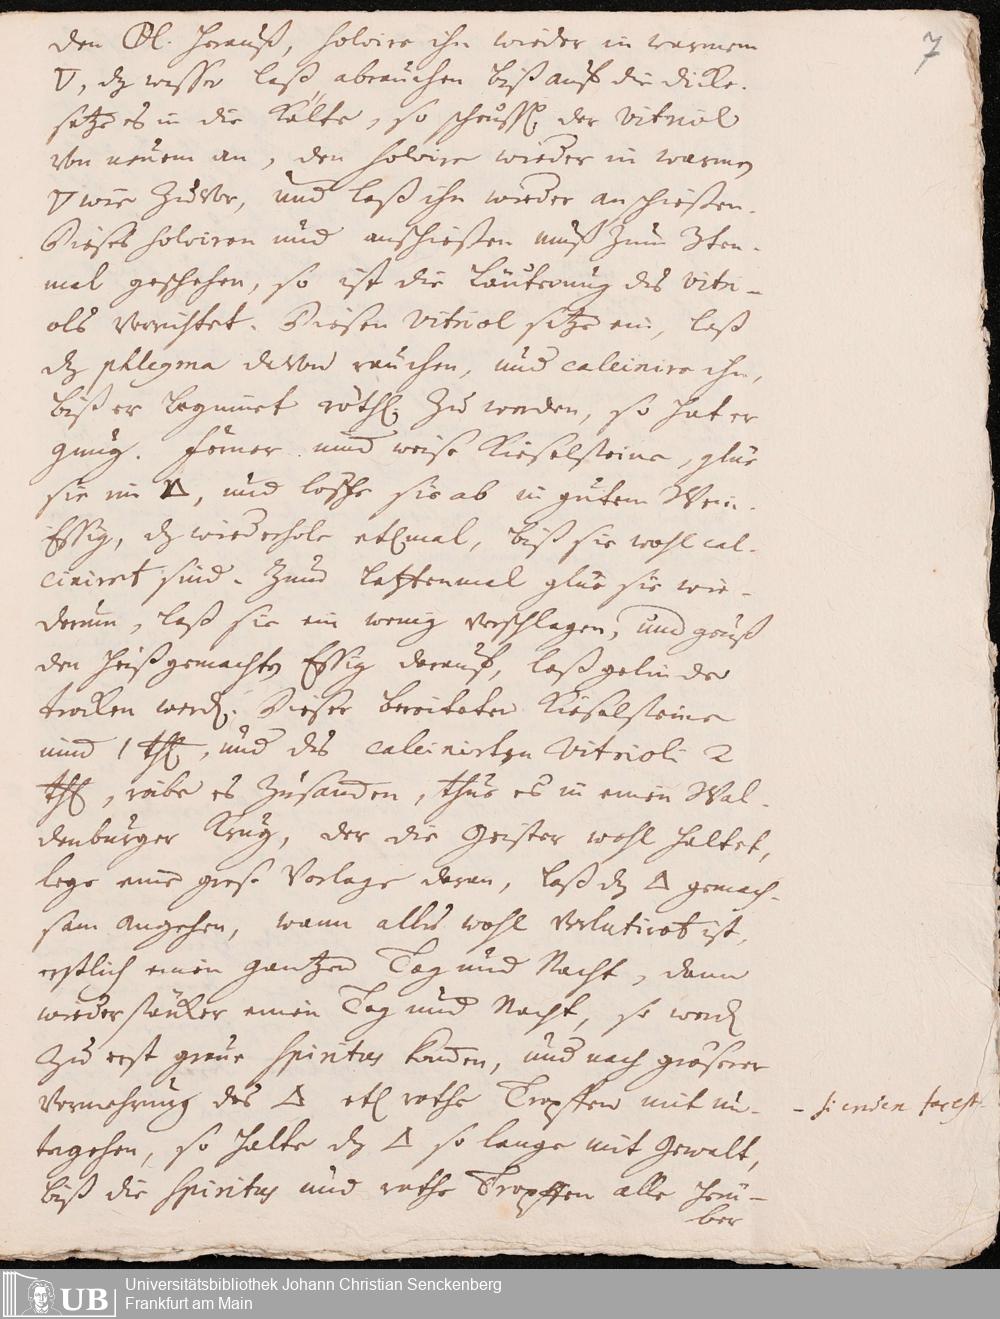 7
den Θl. herauß, solvire ihn wieder in warmem
▽, dz wasser laß abrauchen biß auf die dicke.
setze es in die Kälte, so scheußt der Vitriol
von neuem an, den solvire wieder in warmen
▽ wie zuvor, und laß ihn wieder anschießen.
Dieses solviren und anschießen muß zum 3ten-
mal geschehen, so ist die Läuterung des vitri-
ols verrichtet. Diesen Vitriol setze ein, laß
dz phlegma davon rauchen, und calcinire ihn,
biß er beginnet röthl. zu werden, so hat er
gnug. Ferner nimb weise Kieselsteine, glüe
sie im △, und lösche sie ab in gutem Wein-
Essig, dz wiederhole etlmal, biß sie wohl cal-
ciniret sind. Zum letztenmal glüe sie wie-
derum, laß sie ein wenig verschlagen, und geuß
den heißgemachten Essig darauf, laß gelinde
trocken werden. Dieser bereiteten Kieselsteine
nimb 1 thl, und des calcinirten Vitrioli 2
thl, reibe es zusammen, thue es in einen Wal-
denburger Krug, der die Geister wohl haltet,
lege eine große Vorlage daran, laß dz △ gemach-
sam angehen, wann alles wohl verlutiret ist,
erstlich einen gantzen Tag und Nacht, dann
wieder stärker einen Tag und Nacht, so werden
zu erst graue Spiritus kommen, und nach größerer
Vermehrung des △ etl rothe Tropffen mit un-
tergehen, so halte dz △ so lange mit Gewalt,
biß die Spiritus und rothe Tropffen alle herü-
ber
Universitätsbibliothek Johann Christian Senckenberg
Frankfurt am Main
UB